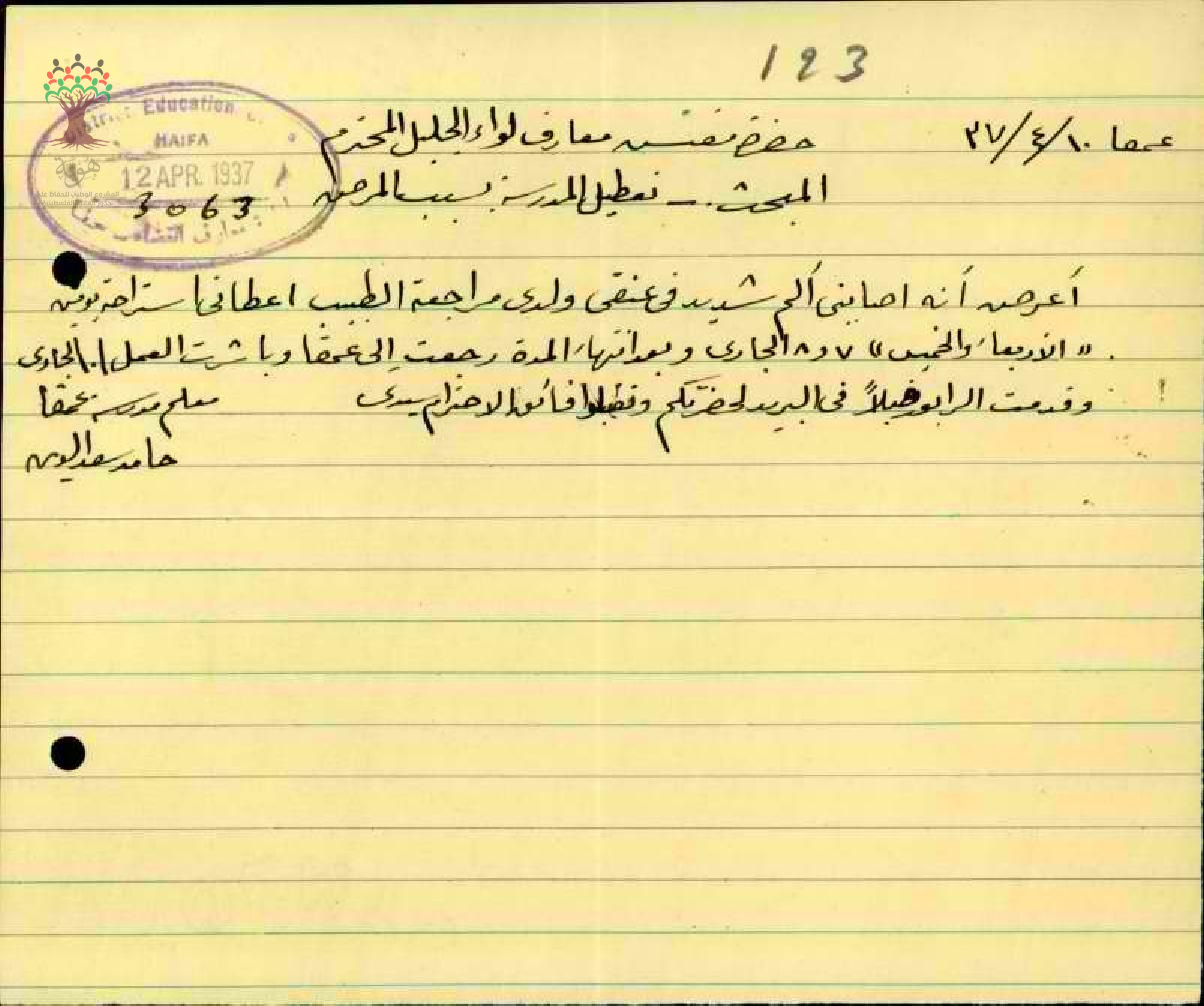 123
عمقا ١٠/٤/٣٧
حضرة مفتش معارف لواء الجليل المحترم
المبحث :- تعطيل المدرسة بسبب المرض
Education
HAIFA
12 APR. 1937
3063
معارف
أعرض أنه اصابني ألم شديد في عنقي ولدى مراجعة الطبيب اعطاني استراحة يومين
"الأربعاء والخميس" ٧ و ٨ الجاري وبعد انتهاء المدة رجعت إلى عمقا وباشرت العمل ١٠ الجاري
وقدمت الرابور قبلاً في البريد لحضرتكم وتفضلوا فائق الاحترام سيدي
معلم مدرسة عمقا
حامد سعد الدين